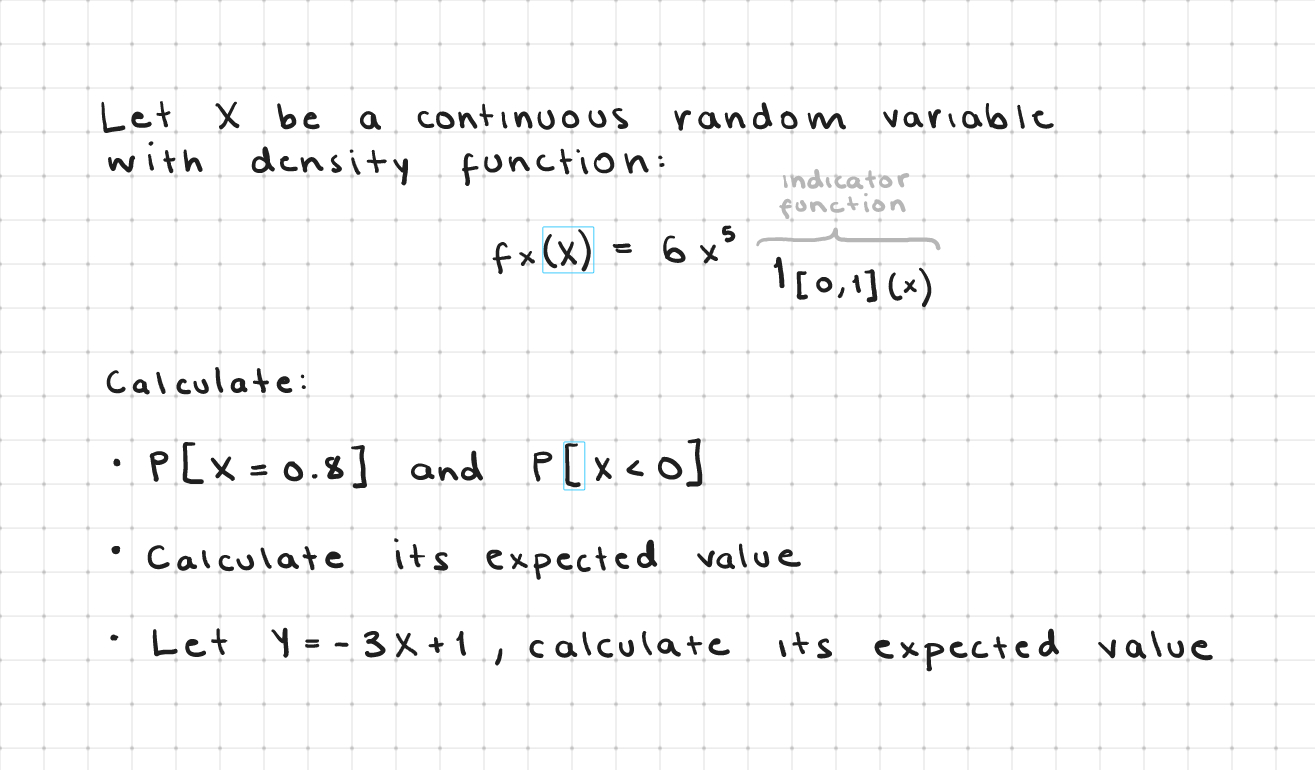 Let X be a continuous random variable
with density function:
indicator
function
fx(x) = 6x⁵ 1[0,1](x)
Calculate:
• P[X = 0.8] and P[X < 0]
• Calculate its expected value
• Let Y = -3X + 1, calculate its expected value